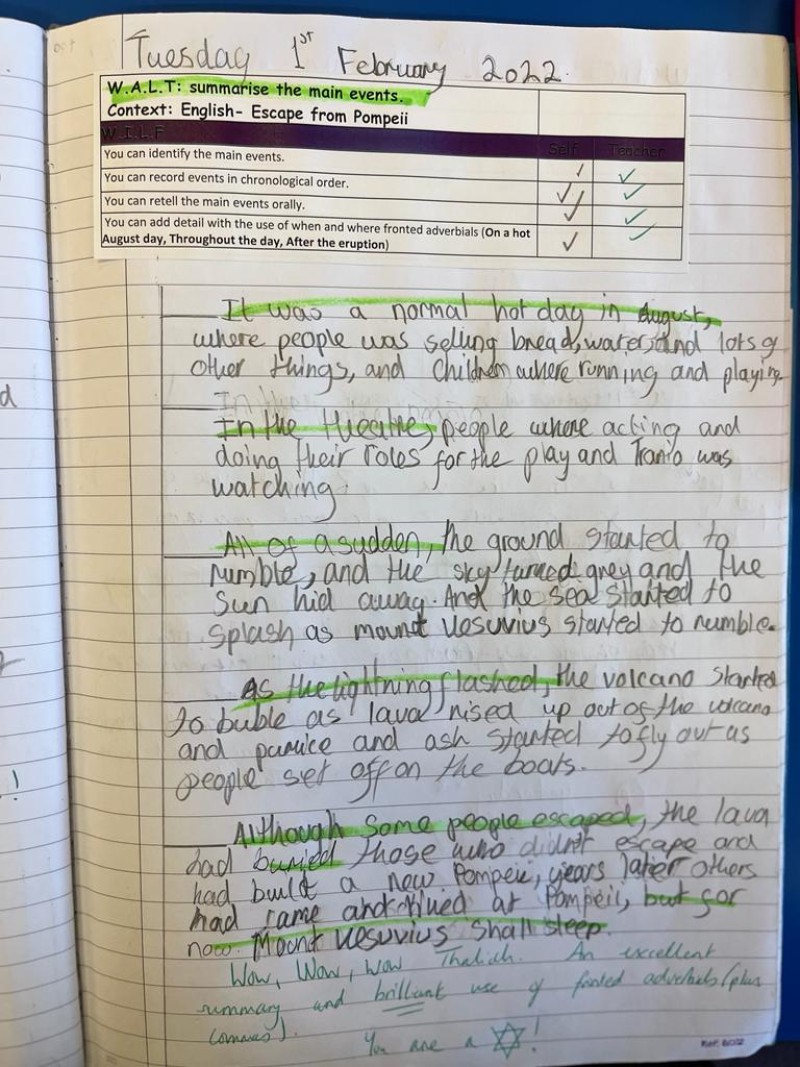 Tuesday 1st February 2022.
W.A.L.T: summarise the main events.
Context: English- Escape from Pompeii
W.I.L.F Self Teacher
You can identify the main events.
You can record events in chronological order.
You can retell the main events orally.
You can add detail with the use of when and where fronted adverbials (On a hot
August day, Throughout the day, After the eruption)
It was a normal hot day in August,
where people was selling bread, water, and lots of
other things, and children where running and playing.
In the
In the theatre, people where acting and
doing their roles for the play and Tranio was
watching.
All of a sudden, the ground started to
rumble, and the sky turned grey and the
sun hid away. And the sea started to
splash as mount Vesuvius started to rumble.
As the lightning flashed, the volcano started
to buble as lava rised up out of the volcano
and pumice and ash started to fly out as
people set off on the boats.
Although some people escaped, the lava
had buried those who didn't escape and
had built a new Pompeii, years later others
had came and at Pompeii, but for
now Mount Vesuvius shall sleep.
Wow, Wow, Wow An excellent
summary and brilliant use of fronted adverbials (plus
commas).
You are a !
d
!